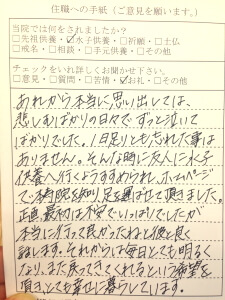 住職への手紙(ご意見を願います。)
当院では何をされましたか?
□先祖供養・☑水子供養・□祈願・□士仏
□戒名・□相談・□手元供養・□その他
チェックをいれ詳しくお聞かせ下さい。
□意見・□質問・□苦情・☑お礼・□その他
あれから本当に思い出しては、
悲しむばかりの日々でずっと泣いて
ばかりでした。1日足りとも忘れた事は
ありません。そんな時に友人に水子
供養へ行くようすすめられ、ホームページ
で寺院を知り、足を運ばせて頂きました。
正直、最初は不安でいっぱいでしたが
本当に行って良かったねと彼と良く
話します。それからは毎日とても明るく
なり、また戻ってきてくれるという希望を
頂き、とても幸せに暮らしています。